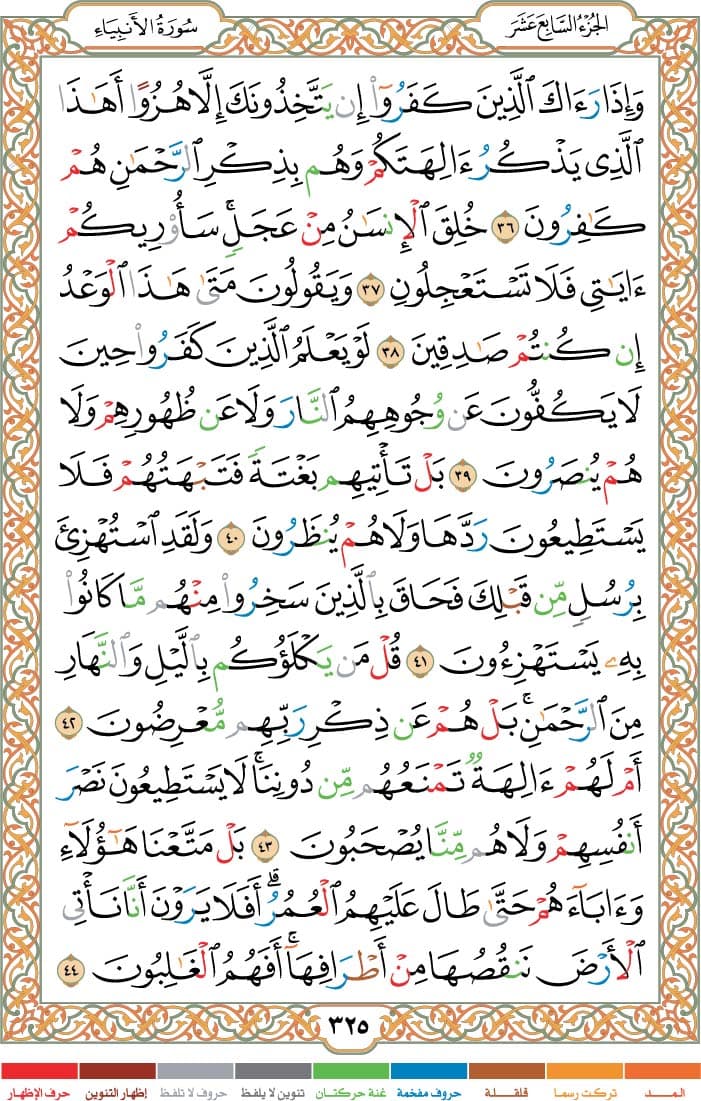 الجزء السابع عشر
سورة الأنبياء
وَإِذَا رَءَاكَ ٱلَّذِينَ كَفَرُوٓا۟ إِن يَتَّخِذُونَكَ إِلَّا هُزُوًا أَهَٰذَا
ٱلَّذِى يَذْكُرُ ءَالِهَتَكُمْ وَهُم بِذِكْرِ ٱلرَّحْمَٰنِ هُمْ
كَٰفِرُونَ ٣٦ خُلِقَ ٱلْإِنسَٰنُ مِنْ عَجَلٍ ۚ سَأُو۟رِيكُمْ
ءَايَٰتِى فَلَا تَسْتَعْجِلُونِ ٣٧ وَيَقُولُونَ مَتَىٰ هَٰذَا ٱلْوَعْدُ
إِن كُنتُمْ صَٰدِقِينَ ٣٨ لَوْ يَعْلَمُ ٱلَّذِينَ كَفَرُوا۟ حِينَ
لَا يَكُفُّونَ عَن وُجُوهِهِمُ ٱلنَّارَ وَلَا عَن ظُهُورِهِمْ وَلَا
هُمْ يُنصَرُونَ ٣٩ بَلْ تَأْتِيهِم بَغْتَةً فَتَبْهَتُهُمْ فَلَا
يَسْتَطِيعُونَ رَدَّهَا وَلَا هُمْ يُنظَرُونَ ٤٠ وَلَقَدِ ٱسْتُهْزِئَ
بِرُسُلٍ مِّن قَبْلِكَ فَحَاقَ بِٱلَّذِينَ سَخِرُوا۟ مِنْهُم مَّا كَانُوا۟
بِهِۦ يَسْتَهْزِءُونَ ٤١ قُلْ مَن يَكْلَؤُكُم بِٱلَّيْلِ وَٱلنَّهَارِ
مِنَ ٱلرَّحْمَٰنِ ۚ بَلْ هُمْ عَن ذِكْرِ رَبِّهِم مُّعْرِضُونَ ٤٢
أَمْ لَهُمْ ءَالِهَةٌ تَمْنَعُهُم مِّن دُونِنَا ۚ لَا يَسْتَطِيعُونَ نَصْرَ
أَنفُسِهِمْ وَلَا هُم مِّنَّا يُصْحَبُونَ ٤٣ بَلْ مَتَّعْنَا هَٰٓؤُلَآءِ
وَءَابَآءَهُمْ حَتَّىٰ طَالَ عَلَيْهِمُ ٱلْعُمُرُ ۗ أَفَلَا يَرَوْنَ أَنَّا نَأْتِى
ٱلْأَرْضَ نَنقُصُهَا مِنْ أَطْرَافِهَآ ۚ أَفَهُمُ ٱلْغَٰلِبُونَ ٤٤
٣٢٥
المـــد تركت رسما قلقــلة حروف مفخمة غنة حركتان تنوين لا يلفظ حروف لا تلفظ إظهار التنوين حرف الإظهار